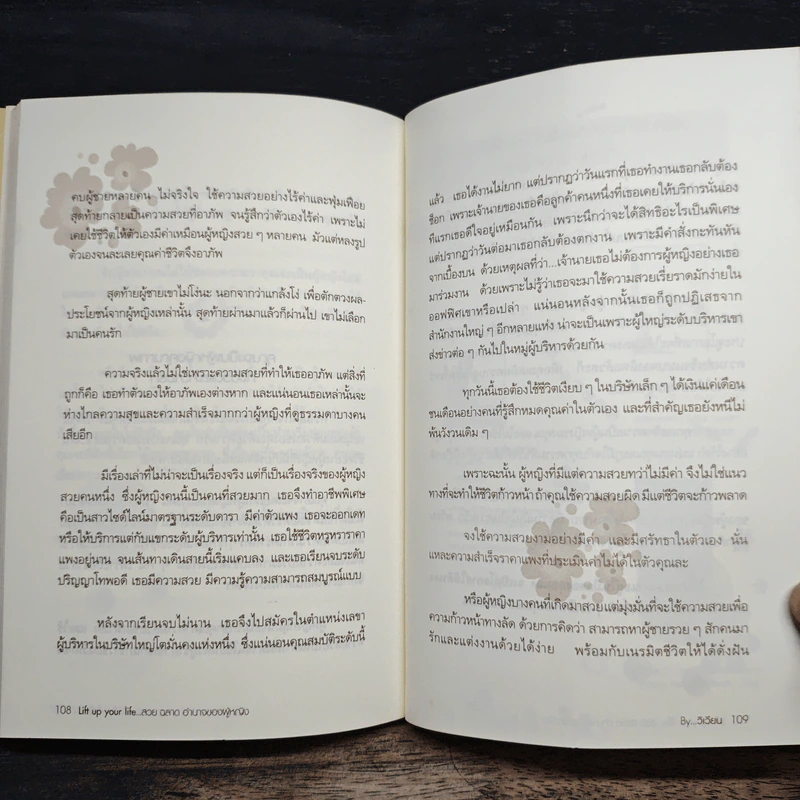 คบผู้ชายหลายคน ไม่จริงใจ ใช้ความสวยอย่างไร้ค่าและฟุ่มเฟือย
สุดท้ายกลายเป็นความสวยที่อาภัพ จนรู้สึกว่าตัวเองไร้ค่า เพราะไม่
เคยใช้ชีวิตให้ตัวเองมีค่าเหมือนผู้หญิงสวย ๆ หลายคน มัวแต่หลงรูป
ตัวเองจนละเลยคุณค่าชีวิตจึงอาภัพ
สุดท้ายผู้ชายเขาไม่โง่นะ นอกจากว่าแกล้งโง่ เพื่อตักตวงผล-
ประโยชน์จากผู้หญิงเหล่านั้น สุดท้ายผ่านมาแล้วก็ผ่านไป เขาไม่เลือก
มาเป็นคนรัก
ความจริงแล้วไม่ใช่เพราะความสวยที่ทำให้เธออาภัพ แต่สิ่งที่
ถูกก็คือ เธอทำตัวเองให้อาภัพเองต่างหาก และแน่นอนเธอเหล่านั้นจะ
ห่างไกลความสุขและความสำเร็จมากกว่าผู้หญิงที่ดูธรรมดาบางคน
เสียอีก
มีเรื่องเล่าที่ไม่น่าจะเป็นเรื่องจริง แต่ก็เป็นเรื่องจริงของผู้หญิง
สวยคนหนึ่ง ซึ่งผู้หญิงคนนี้เป็นคนที่สวยมาก เธอจึงทำอาชีพพิเศษ
คือเป็นสาวไซด์ไลน์มาตรฐานระดับดารา มีค่าตัวแพง เธอจะออกเดท
หรือให้บริการแต่กับแขกระดับผู้บริหารเท่านั้น เธอใช้ชีวิตหรูหราราคา
แพงอยู่นาน จนเส้นทางเดินสายนี้เริ่มแคบลง และเธอเรียนจบระดับ
ปริญญาโทพอดี เธอมีความสวย มีความรู้ความสามารถสมบูรณ์แบบ
หลังจากเรียนจบไม่นาน เธอจึงไปสมัครในตำแหน่งเลขา
ผู้บริหารในบริษัทใหญ่โตมั่นคงแห่งหนึ่ง ซึ่งแน่นอนคุณสมบัติระดับนี้
108 Lift up your life...สวย ฉลาด อำนาจของผู้หญิง
แล้ว เธอได้งานไม่ยาก แต่ปรากฏว่าวันแรกที่เธอทำงานเธอกลับต้อง
ช็อก เพราะเจ้านายของเธอคือลูกค้าคนหนึ่งที่เธอเคยให้บริการนั่นเอง
ทีแรกเธอดีใจอยู่เหมือนกัน เพราะนึกว่าจะได้สิทธิอะไรเป็นพิเศษ
แต่ปรากฏว่าวันต่อมาเธอกลับต้องตกงาน เพราะมีคำสั่งกะทันหัน
จากเบื้องบน ด้วยเหตุผลที่ว่า...เจ้านายเธอไม่ต้องการผู้หญิงอย่างเธอ
มาร่วมงาน ด้วยเพราะไม่รู้ว่าเธอจะมาใช้ความสวยเรี่ยราดมักง่ายใน
ออฟฟิศเขาหรือเปล่า แน่นอนหลังจากนั้นเธอก็ถูกปฏิเสธจาก
สำนักงานใหญ่ ๆ อีกหลายแห่ง น่าจะเป็นเพราะผู้ใหญ่ระดับบริหารเขา
ส่งข่าวต่อ ๆ กันไปในหมู่ผู้บริหารด้วยกัน
ทุกวันนี้เธอต้องใช้ชีวิตเงียบ ๆ ในบริษัทเล็ก ๆ ได้เงินแค่เดือน
ชนเดือนอย่างคนที่รู้สึกหมดคุณค่าในตัวเอง และที่สำคัญเธอยังหนีไม่
พ้นวังวนเดิม ๆ
เพราะฉะนั้น ผู้หญิงที่มีแต่ความสวยทว่าไม่มีค่า จึงไม่ใช่แนว
ทางที่จะทำให้ชีวิตก้าวหน้า ถ้าคุณใช้ความสวยผิด มีแต่ชีวิตจะก้าวพลาด
จงใช้ความสวยงามอย่างมีค่า และมีศรัทธาในตัวเอง นั่น
แหละความสำเร็จราคาแพงที่ประเมินค่าไม่ได้ในตัวคุณละ
หรือผู้หญิงบางคนที่เกิดมาสวยแต่มุ่งมั่นที่จะใช้ความสวยเพื่อ
ความก้าวหน้าทางลัด ด้วยการคิดว่า สามารถหาผู้ชายรวย ๆ สักคนมา
รักและแต่งงานด้วยได้ง่าย พร้อมกับเนรมิตชีวิตให้ได้ดั่งฝัน
By...วิเวียน 109